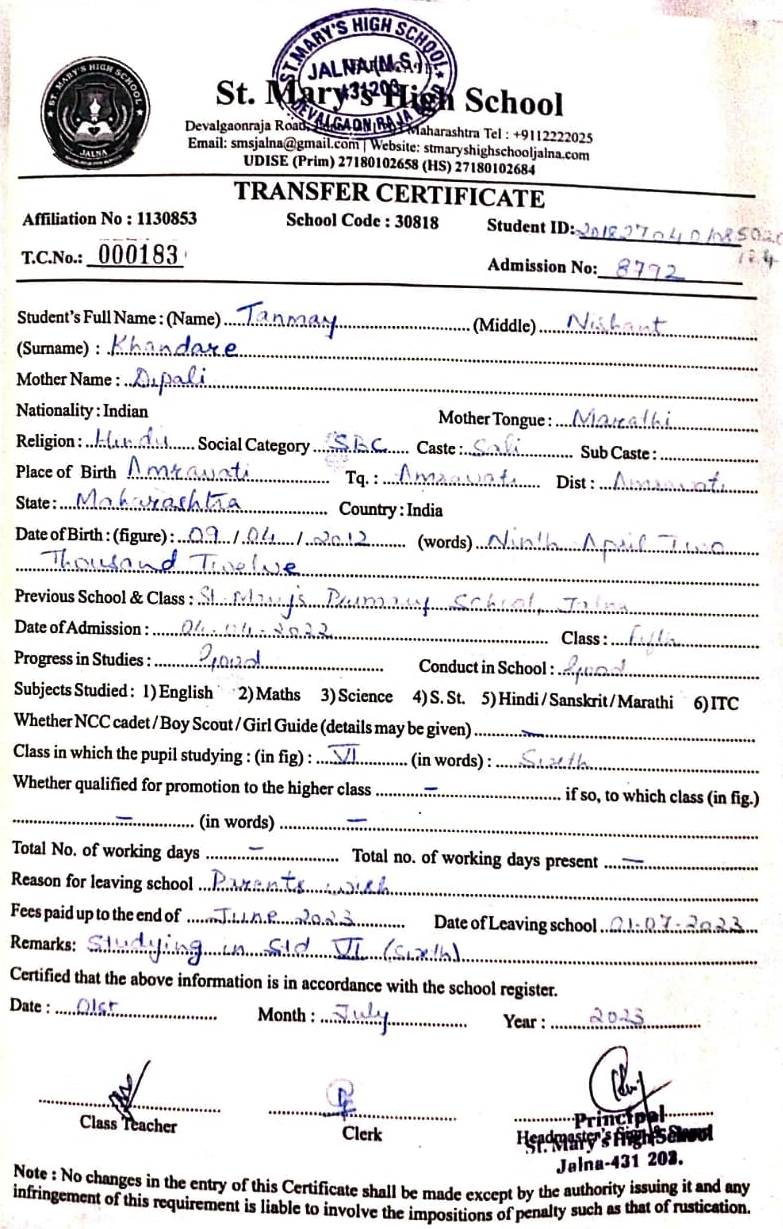 ST. MARY'S HIGH SCHOOL
JALNA (M.S.)
DEVALGAON RAJA
ST. MARY'S HIGH SCHOOL
JALNA
St. Mary's High School
Devalgaonraja Road, Maharashtra Tel : +9112222025
Email: smsjalna@gmail.com | Website: stmaryshighschooljalna.com
UDISE (Prim) 27180102658 (HS) 27180102684
TRANSFER CERTIFICATE
Affiliation No : 1130853 School Code : 30818 Student ID:
T.C.No.: 000183 Admission No: 8792
Student's Full Name : (Name) Tanmay (Middle) Nishant
(Surname) : Khandare
Mother Name : Dipali
Nationality : Indian Mother Tongue : Marathi
Religion : Hindu Social Category SBC Caste : Sali Sub Caste :
Place of Birth Amravati Tq. : Amravati Dist : Amravati
State : Maharashtra Country : India
Date of Birth : (figure) : 09 / 04 / 2012 (words) Ninth April Two
Thousand Twelve
Previous School & Class : St. Mary's Primary School, Jalna
Date of Admission : 04.04.2022 Class : Fifth
Progress in Studies : Good Conduct in School : Good
Subjects Studied : 1) English 2) Maths 3) Science 4) S. St. 5) Hindi / Sanskrit / Marathi 6) ITC
Whether NCC cadet / Boy Scout / Girl Guide (details may be given) —
Class in which the pupil studying : (in fig) : VI (in words) : Sixth
Whether qualified for promotion to the higher class — if so, to which class (in fig.)
— (in words) —
Total No. of working days — Total no. of working days present —
Reason for leaving school Parents wish
Fees paid up to the end of June 2023 Date of Leaving school 01-07-2023
Remarks: Studying in Std VI (Sixth)
Certified that the above information is in accordance with the school register.
Date : 01st Month : July Year : 2023
Class Teacher Clerk Principal
Headmaster's Sign
St. Mary's High School
Jalna-431 203.
Note : No changes in the entry of this Certificate shall be made except by the authority issuing it and any
infringement of this requirement is liable to involve the impositions of penalty such as that of rustication.